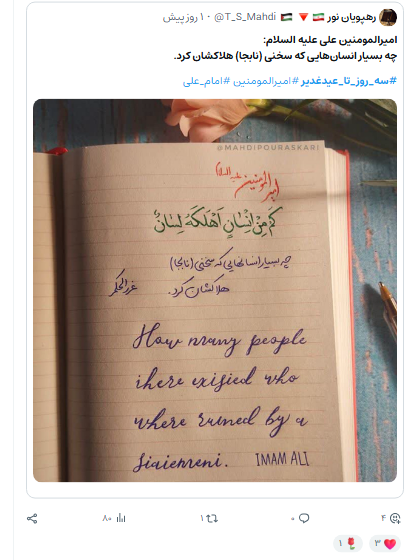 رهپویان نور 🇮🇷 🔻 🇵🇸 @T_S_Mahdi · ۱۰ روز پیش
امیرالمومنین علی علیه السلام:
چه بسیار انسان‌هایی که سخنی (نابجا) هلاکشان کرد.
#سه_روز_تا_عیدغدیر #امیرالمومنین #امام_علی
@MAHDIPOURASKARI
امیرالمومنین علیه السلام
کَم مِن اِنْسٰانٍ اَهْلَکَهُ لِسٰانٌ
چه بسیار انسانهایی که سخنی (نابجا)
هلاکشان کرد. غررالحکم
How many people
ihere exisied who
where ruined by a
siaiemeni. IMAM ALI
۴ ۰ ۱ ۸۰
۳ ۱